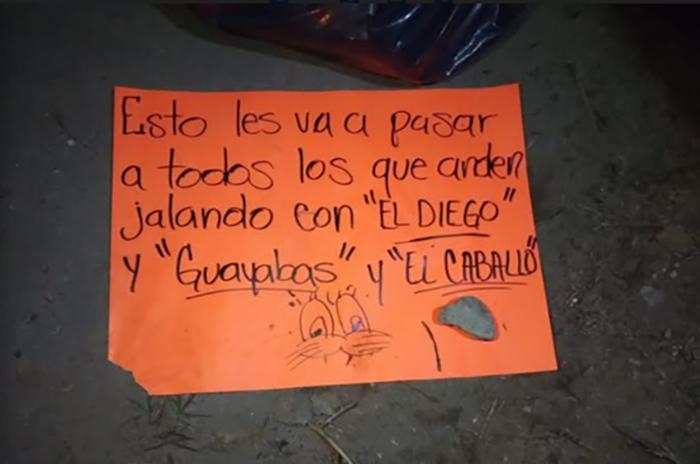 Esto les va a pasar
a todos los que anden
jalando con "EL DIEGO"
y "Guayabas" y "EL CABALLO"